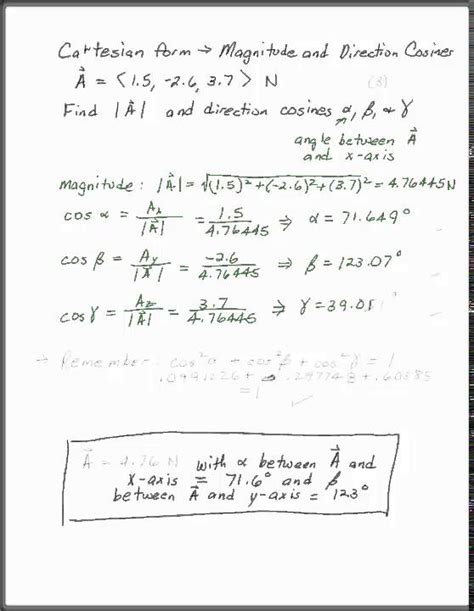 Cartesian form → Magnitude and Direction Cosines
A⃗ = ⟨1.5, -2.6, 3.7⟩ N (3)
Find |A⃗| and direction cosines α, β, & γ
angle between A⃗
and x-axis
magnitude: |A⃗| = √(1.5)² + (-2.6)² + (3.7)² = 4.76445 N
cos α = Ax/|A⃗| = 1.5/4.76445 ⇒ α = 71.649°
cos β = Ay/|A⃗| = -2.6/4.76445 ⇒ β = 123.07°
cos γ = Az/|A⃗| = 3.7/4.76445 ⇒ γ = 39.0
→ Remember: cos²α + cos²β + cos²γ = 1
.0991226 + .297748 + .60
= 1 ✓
A⃗ = 4.76 N with α between A⃗ and
x-axis = 71.6° and β
between A⃗ and y-axis = 123°